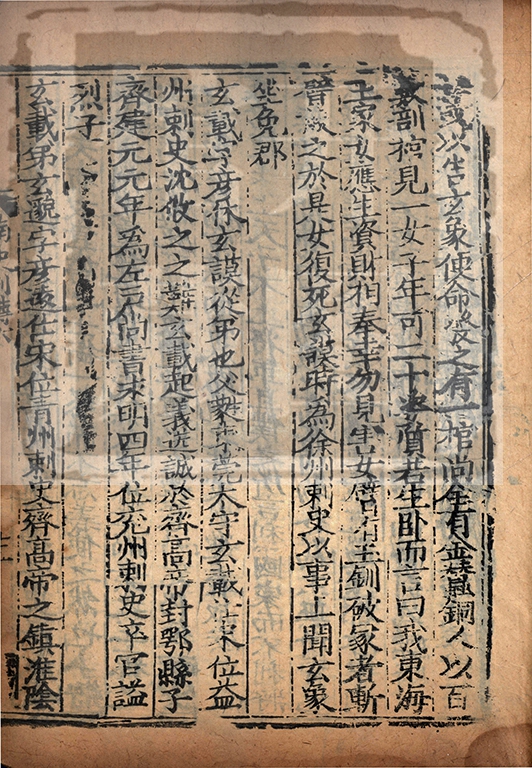 以告玄象使命發之有一棺尚全有金蠶銅人以百
數剖棺見一女子年可二十姿質若生卧而言曰我東海
王家女應生資財相奉幸勿見害女臂有玉釧破冢者斬
臂取之於是女復死玄謨時為徐州刺史以事上聞玄象
坐免郡
玄載字彦休玄謨從弟也父蕤東莞太守玄載仕宋位益
州刺史沈攸之之難玄載起義送誠於齊高帝封鄂縣子
齊建元元年為左户尚書永明四年位兖州刺史卒官謚
烈子
玄載弟玄邈字彦遠仕宋位青州刺史齊髙帝之鎮淮陰